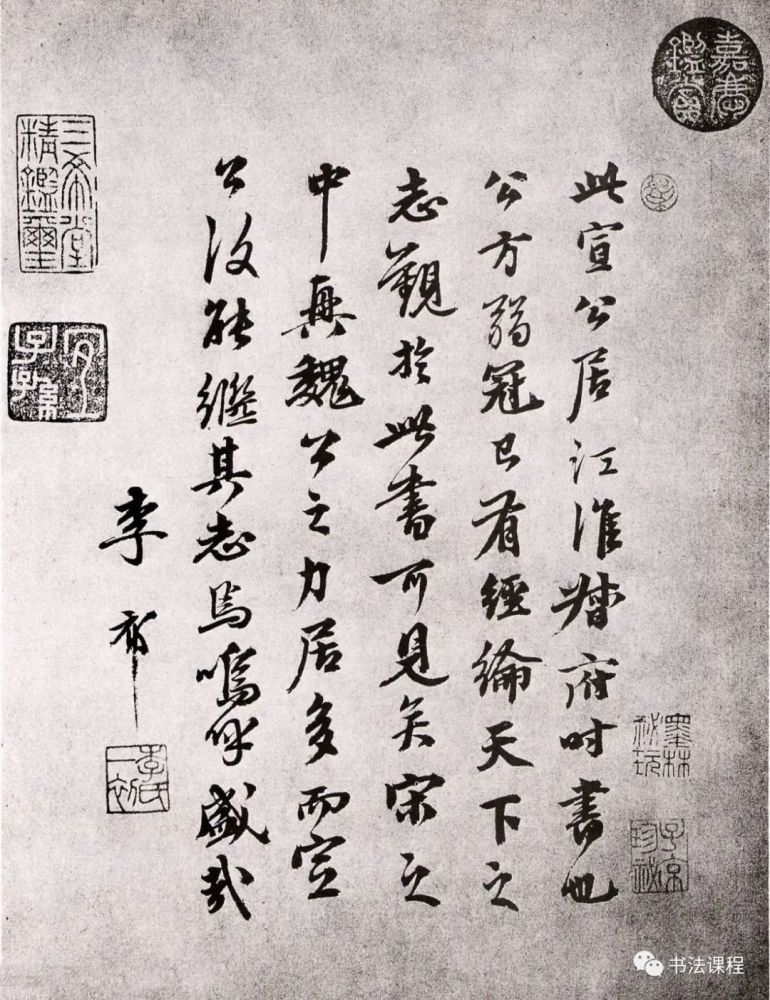 嘉慶鑑賞
此宣公居江淮督府时書也
公方弱冠已有經綸天下之
志觀於此書可見矣宋之
中興魏公之力居多而宣
公復能繼其志焉嗚呼盛哉
李祁
李氏一初
三希堂精鑑璽
宜子孫
墨林秘玩
子京珍秘
书法课程